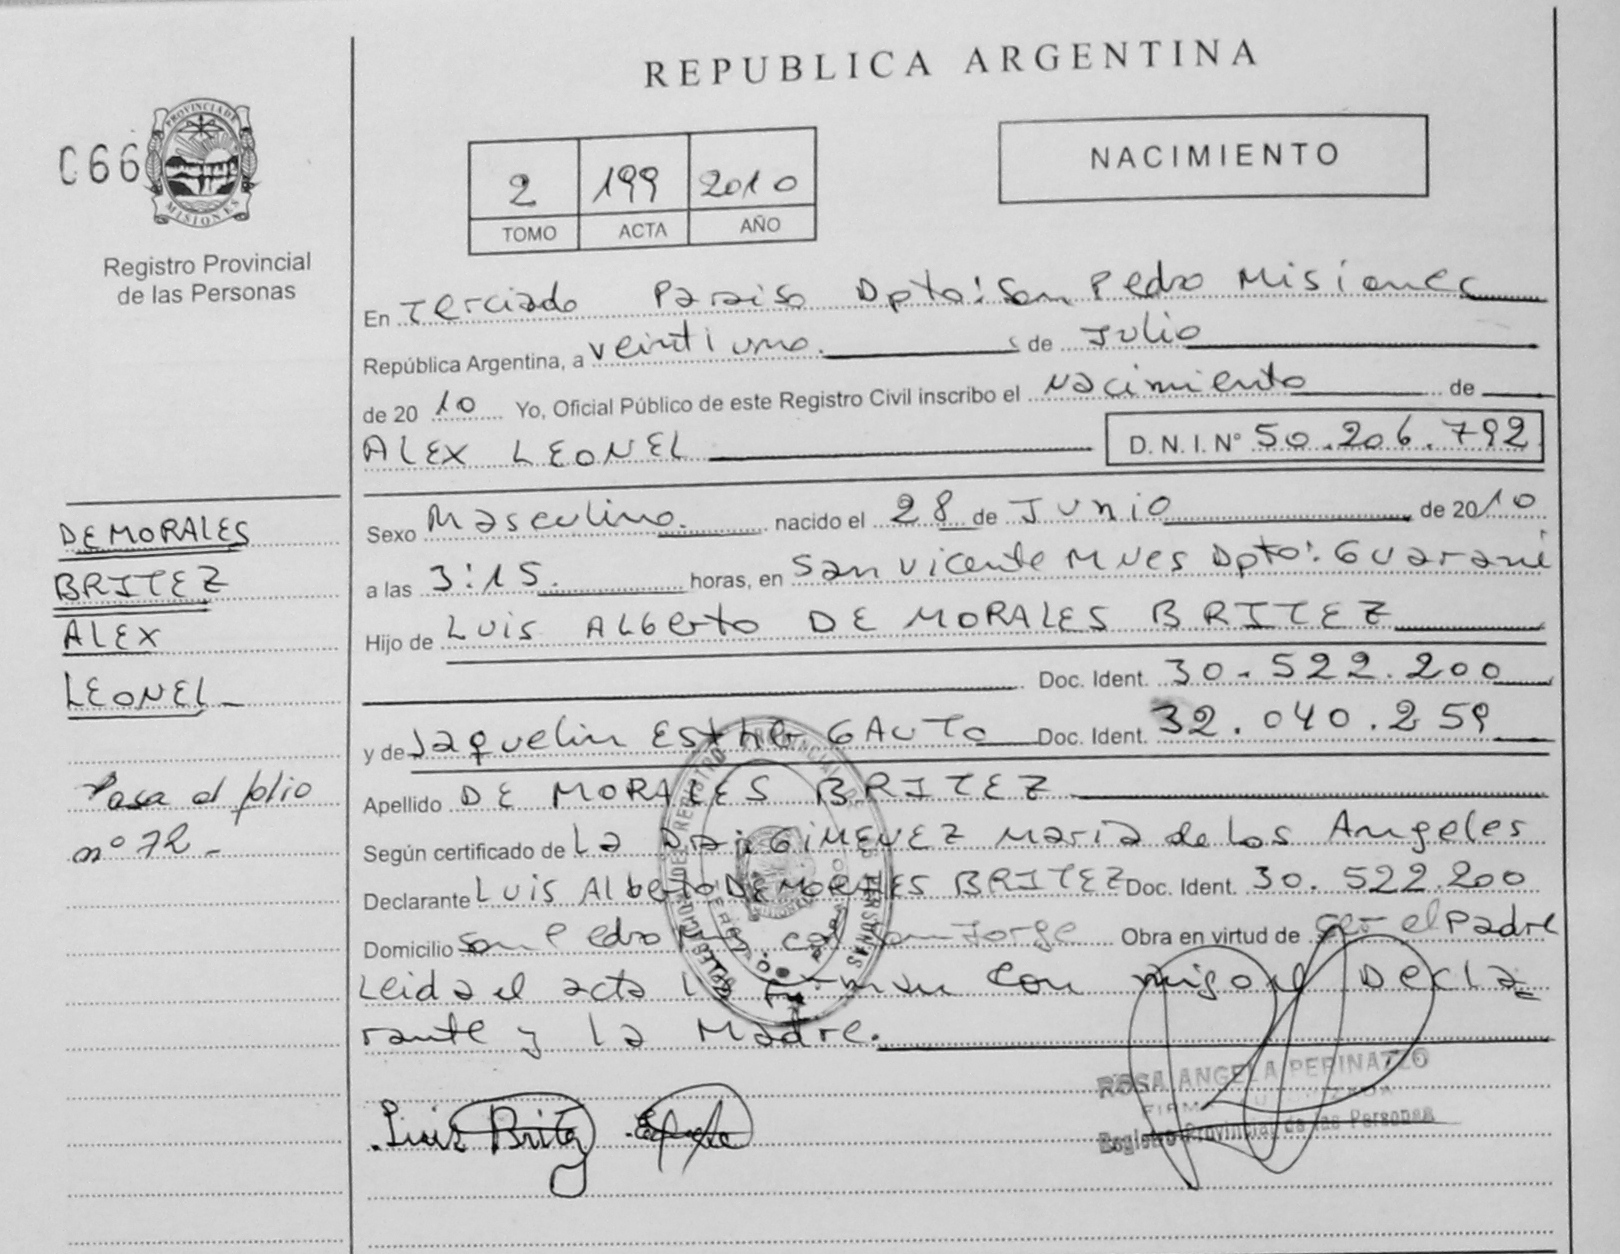 REPUBLICA ARGENTINA
C66
PROVINCIA DE
MISIONES
Registro Provincial
de las Personas
2 199 2010
TOMO ACTA AÑO
NACIMIENTO
En Terciado Paraiso Dpto: San Pedro Misiones
República Argentina, a veintiuno de Julio
de 2010 Yo, Oficial Público de este Registro Civil inscribo el Nacimiento de
ALEX LEONEL D.N.I.Nº 50.206.792
Sexo Masculino. nacido el 28 de Junio de 2010
a las 3:15. horas, en San Vicente Mnes Dpto: Guarani
Hijo de Luis Alberto DE MORALES BRITEZ
Doc. Ident. 30.522.200
y de Jaquelin Esther GAUTO Doc. Ident. 32.040.259
Apellido DE MORALES BRITEZ
Según certificado de La Dra: GIMENEZ Maria de los Angeles
Declarante Luis Alberto DE MORALES BRITEZ Doc. Ident. 30.522.200
Domicilio San Pedro San Jorge Obra en virtud de ser el Padre
Leida el acta la firman con migo el Decla=
rante y la Madre.
DE MORALES
BRITEZ
ALEX
LEONEL
Pasa al folio
nº 72
Luis Britez
ROSA ANGELA PERINAZZO
Registro Provincial de las Personas